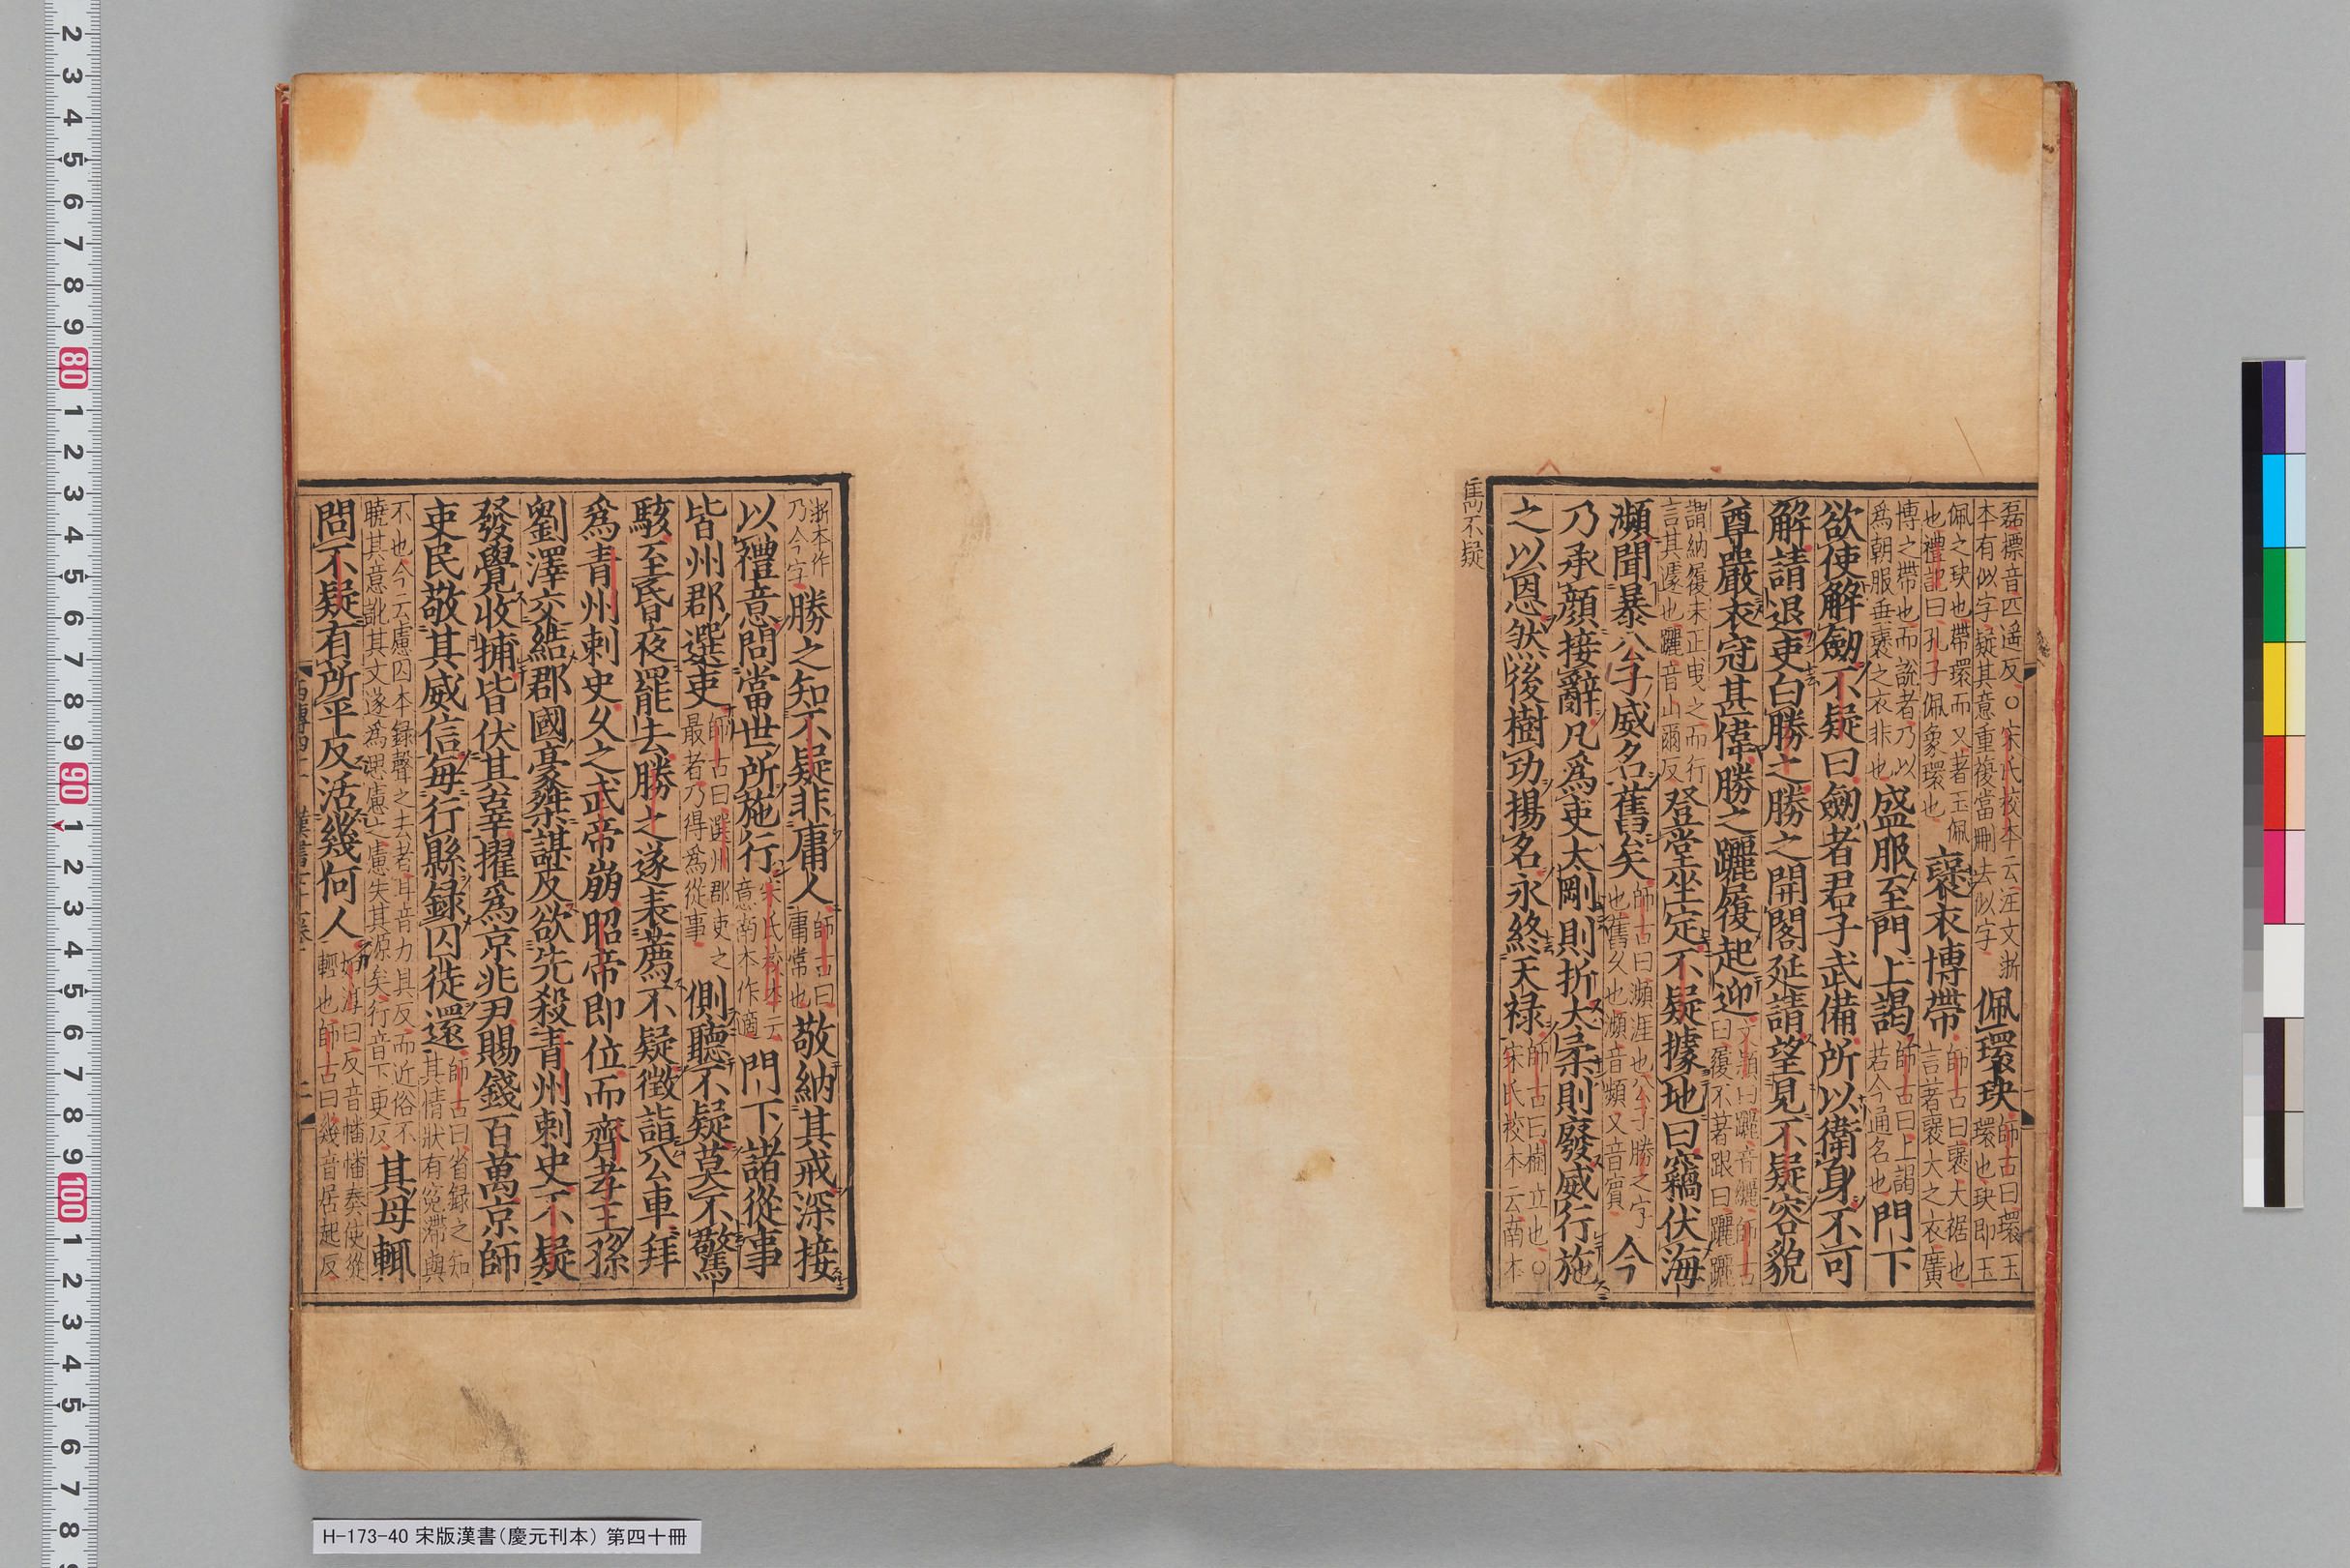 磊標音匹遙反○宋氏校本云注文浙
本有似字疑其意重複當刪去似字
佩環玦
師古曰環玉
環也玦即玉
佩之玦也帶環而又著玉佩
也禮記曰孔子佩象環也
襃衣博帶
師古曰襃大裾也
言著襃大之衣廣
博之帶也而說者乃以
爲朝服垂襃之衣非也
盛服至門上謁
師古曰上謁
若今通名也
門下
欲使解劒不疑曰劒者君子武備所以衛身不可
解請退吏白勝之勝之開閤延請望見不疑容貌
尊嚴衣冠甚偉勝之躧履起迎
文穎曰躧音纚師古
曰履不著跟曰躧躧
謂納履未正曳之而行
言其遽也躧音山爾反
登堂坐定不疑據地曰竊伏海
瀕聞暴公子威名舊矣
師古曰瀕涯也公子勝之字
也舊久也瀕音頻又音賓
今
乃承顔接辭凡爲吏太剛則折太柔則廢威行施
之以恩然後樹功揚名永終天禄
師古曰樹立也○
宋氏校本云南本
雋不疑
浙本作
乃今字
勝之知不疑非庸人
師古曰
庸常也
敬納其戒深接
以禮意問當世所施行
宋氏校本云
意南本作適
門下諸從事
皆州郡選吏
師古曰選州郡吏之
最者乃得爲從事
側聽不疑莫不驚
駭至昏夜罷去勝之遂表薦不疑徵詣公車拜
爲青州刺史久之武帝崩昭帝即位而齊孝王孫
劉澤交結郡國豪桀謀反欲先殺青州刺史不疑
發覺收捕皆伏其辜擢爲京兆尹賜錢百萬京師
吏民敬其威信每行縣録囚徒還
師古曰省録之知
其情狀有冤滯與
不也今云慮囚本録聲之去者耳音力具反而近俗不
曉其意訛其文遂爲思慮之慮失其源矣行音下更反
其母輒
問不疑有所平反活幾何人
如淳曰反音幡幡奏使從
輕也師古曰幾音居起反
H-173-40 宋版漢書(慶元刊本) 第四十冊